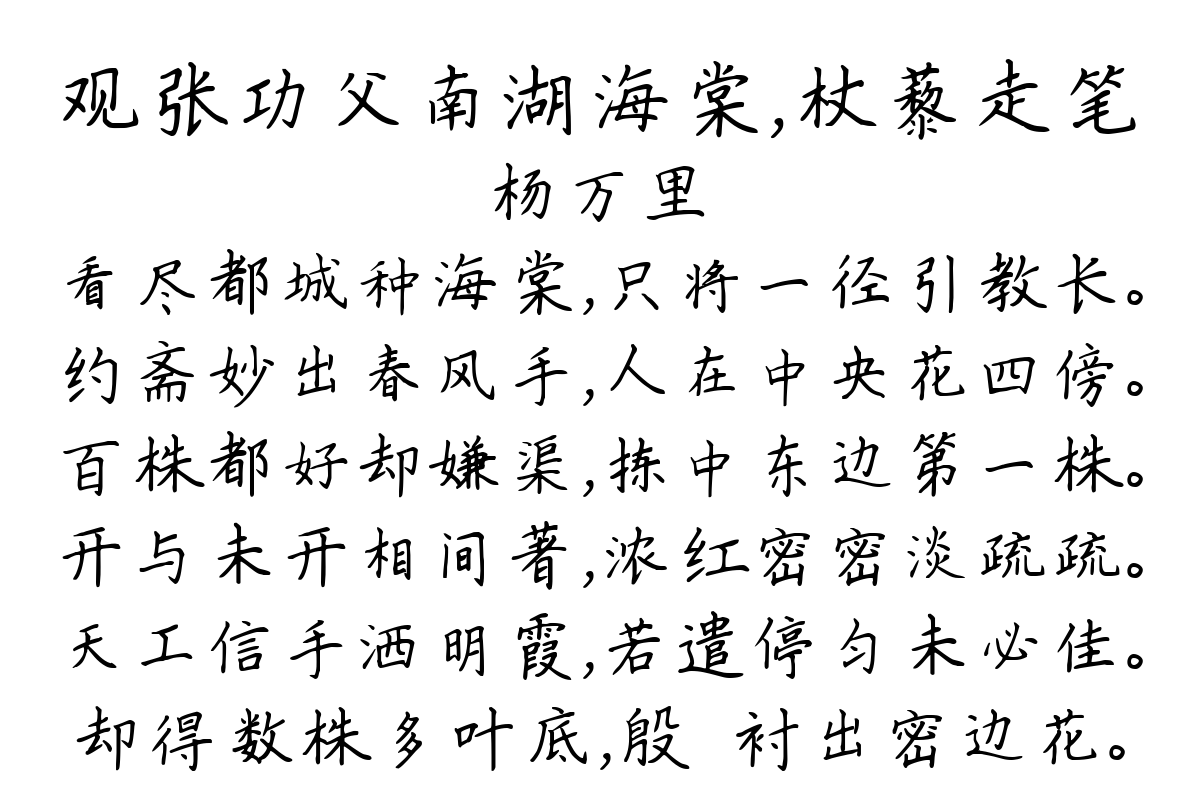 观张功父南湖海棠,杖藜走笔
杨万里
看尽都城种海棠,只将一径引教长。
约斋妙出春风手,人在中央花四傍。
百株都好却嫌渠,拣中东边第一株。
开与未开相间著,浓红密密淡疏疏。
天工信手洒明霞,若遣停匀未必佳。
却得数株多叶底,殷 衬出密边花。